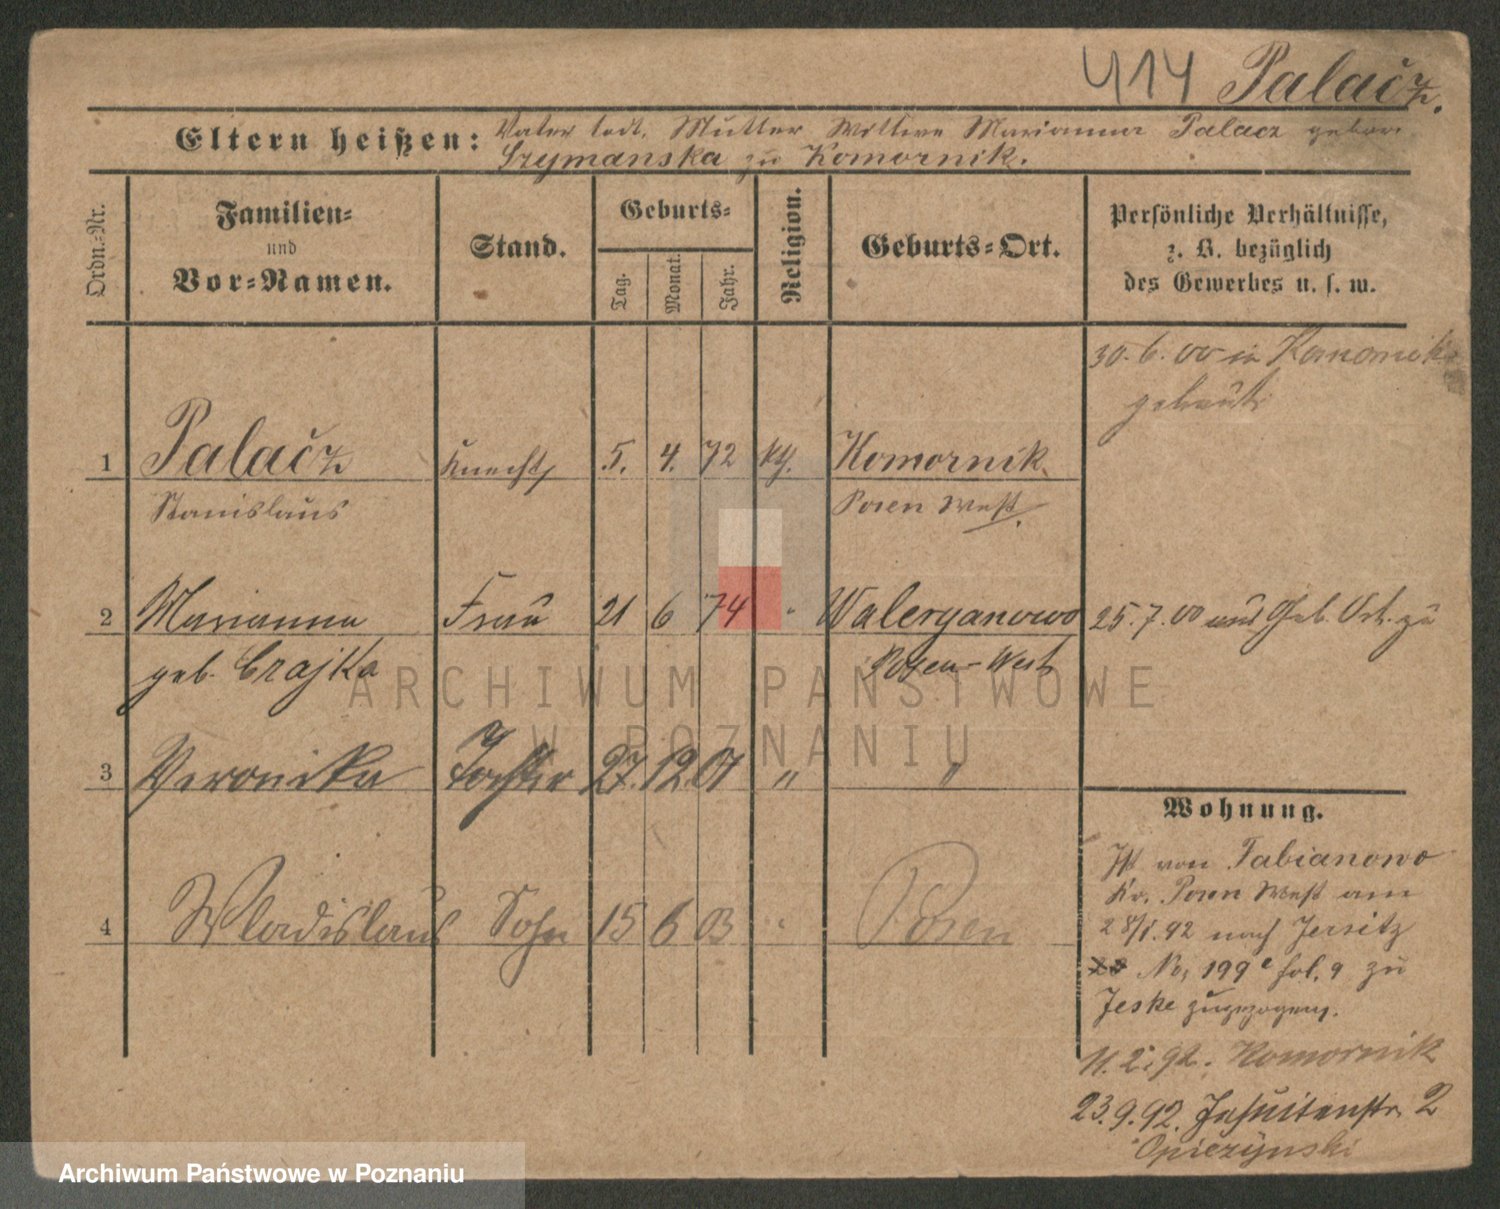 414 Palacz.
Eltern heißen: Vater todt, Mutter Wittwe Marianna Palacz gebor.
Szymanska zu Komornik.
Ordn.-Nr.
Familien-
und
Vor-Namen.
Stand.
Geburts-
Tag.
Monat.
Jahr.
Religion.
Geburts-Ort.
Persönliche Verhältnisse,
z. B. bezüglich
des Gewerbes u. s. w.
30.6.00 in Komornik
getraut
1 Palacz Knecht 5. 4. 72 kth. Komornik
Stanislaus Posen West
2 Marianna Frau 21 6 74 " Waleryanowo 25.7.00 Geb. Ort. zu
geb. Czajka Posen-West
3 Veronika Tochter 27. 12. 01 " "
Wohnung.
4 Wladislaus Sohn 15 6 03 " Posen
Ist von Fabianowo
Kr. Posen West am
28/1.92 nach Jersitz
No. 199e fol. 9 zu
Jeske zugezogen.
11.2.92. Komornik
23.9.92. Jesuitenstr. 2
Opiezynski
ARCHIWUM PAŃSTWOWE
W POZNANIU
Archiwum Państwowe w Poznaniu